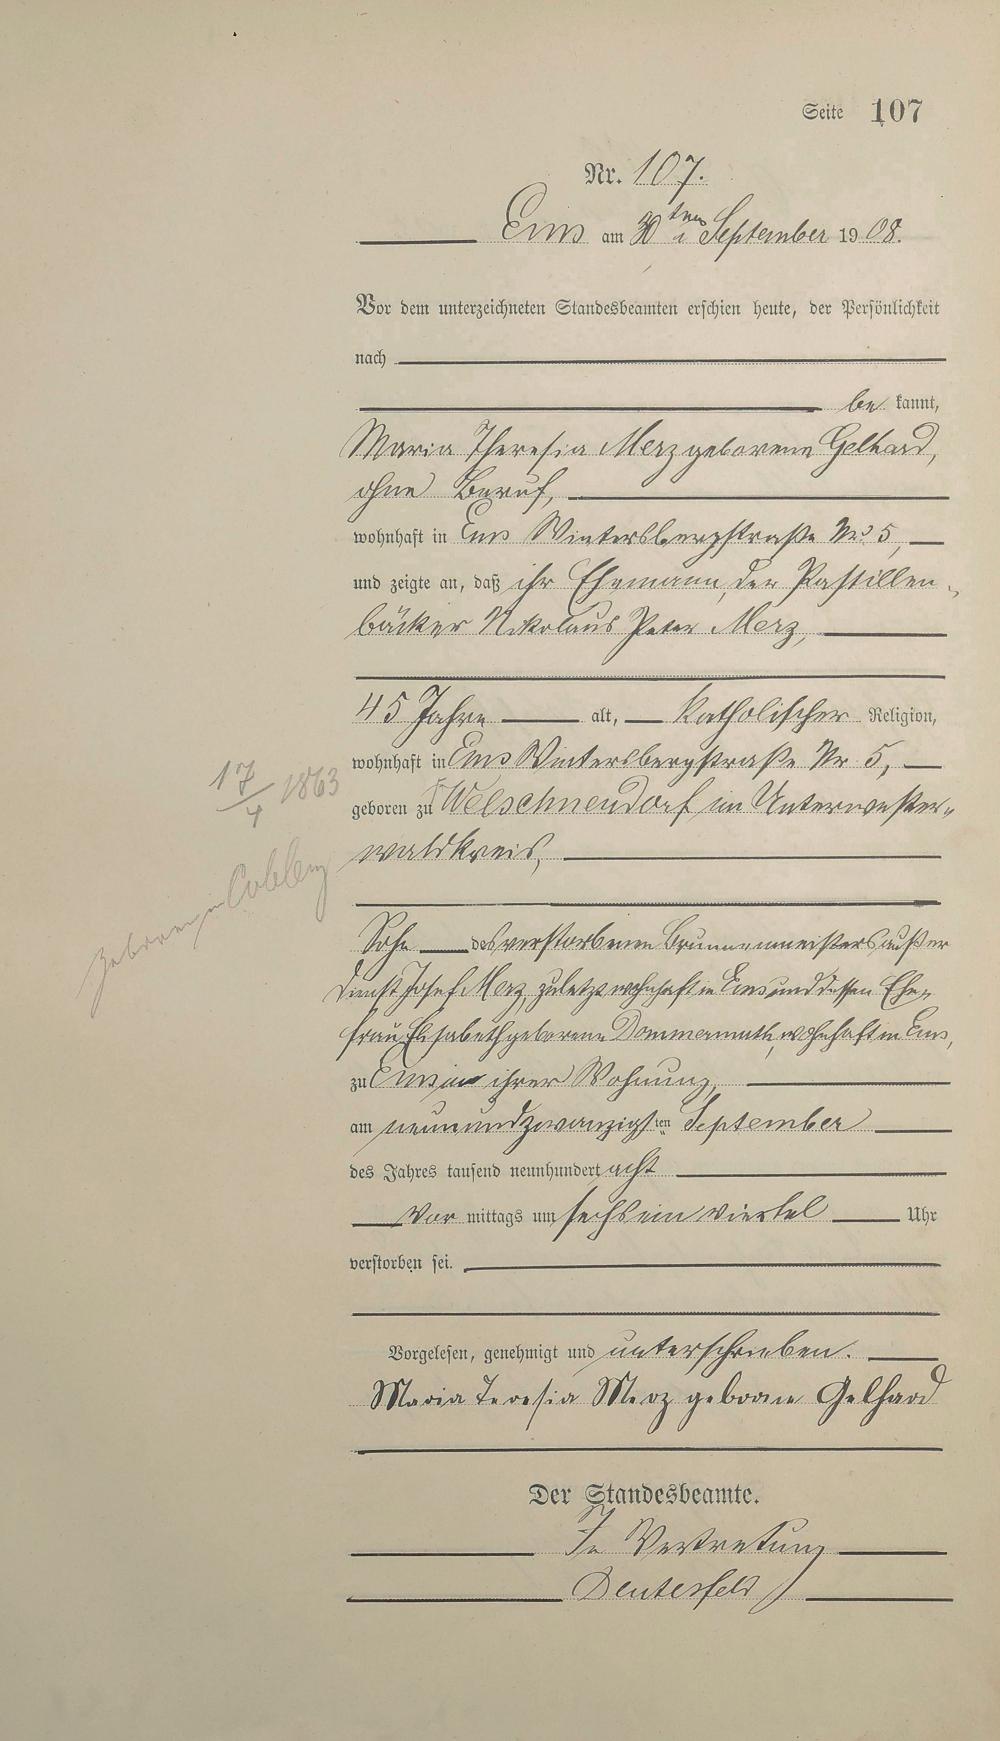 Seite 107
Nr. 107.
Ems am 30ten September 1908.
Vor dem unterzeichneten Standesbeamten erschien heute, der Persönlichkeit
nach
bekannt,
Maria Theresia Merz geborene Gelhard,
ohne Beruf,
wohnhaft in Ems Wintersbergstraße Nr. 5,
und zeigte an, daß ihr Ehemann, der Pastillen-
bäcker Nikolaus Peter Merz,
45 Jahre alt, katholischer Religion,
wohnhaft in Ems Wintersbergstraße Nr 5,
17/4 1863
geboren zu Welschneudorf im Unterwester-
waldkreis,
geboren in Coblenz
Sohn des verstorbenen Brunnenmeisters außer
Dienst Josef Merz, zuletzt wohnhaft in Ems und dessen Ehe-
frau Elisabeth geborene Dommermuth, wohnhaft in Ems,
zu Ems in ihrer Wohnung,
am neunundzwanzigsten September
des Jahres tausend neunhundert acht
Vor mittags um sechs ein viertel Uhr
verstorben sei.
Vorgelesen, genehmigt und unterschrieben.
Maria Teresia Merz geborne Gelhard
Der Standesbeamte.
In Vertretung